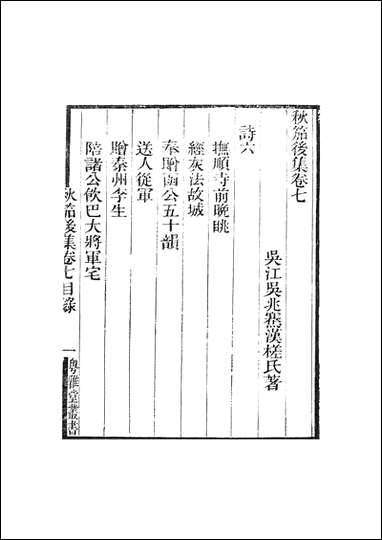 秋笳後集卷七
吳江吳兆騫漢槎氏著
詩六
撫順寺前晚眺
經灰法故城
奉贈函公五十韻
送人從軍
贈泰州李生
陪諸公飲巴大將軍宅
秋笳後集卷七目錄
一
粵雅堂叢書